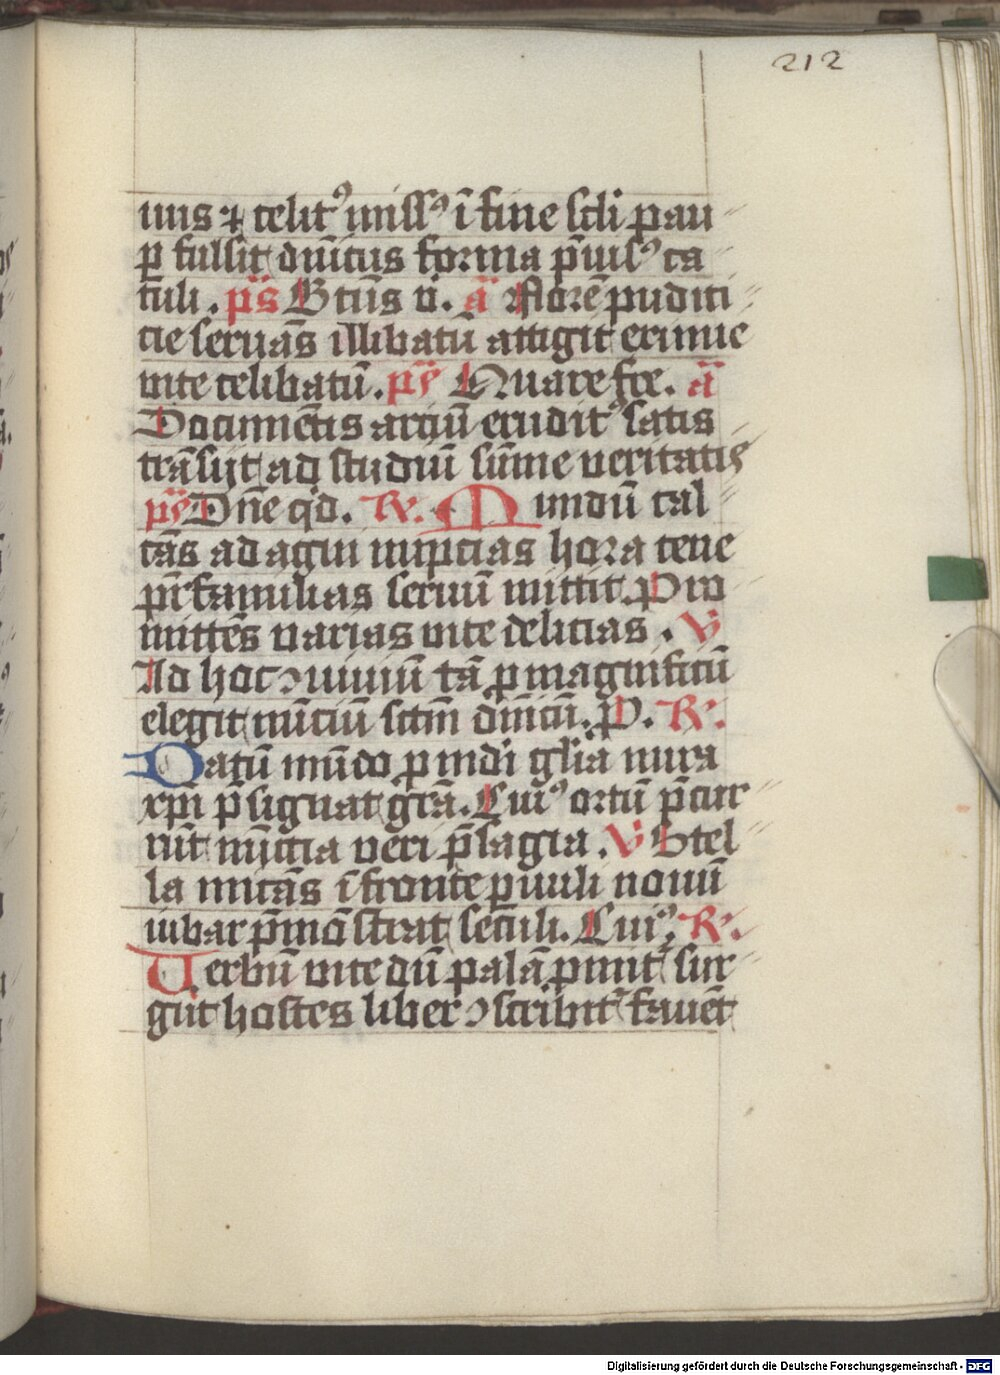 212
uus ⁊ celit9 miss9 ī fine scli pau
ꝑ fulsit diuītus forma p̄uis9 ca
tuli . p̄s Btūs ū. ā Florē pudici
cie seruās illibatū attigit eximie
uite celibatū . p̄s Quare fre. ā
Documētis arciū erudit9 satis
trāsijt ad studiū sūme veritatis
p̄s Dn̄e qd. R. Mundū cal
cās ad agni nupcias hora cene
pr̄familias seruū mittit. Pro
mittēs varias uite delicias . V
Ad hoc ꝯuiuiū tā ꝑmagnificū
elegit nūciū sctm̄ dm̄icū. P. R.
Datū mūdo ꝑ mdi gl̄ia mira
xp̄i p̄signat gr̄a. Cui9 ortū p̄cur
rūt nūctia veri p̄sagia . V Stel
la micās ī fronte ꝑuuli nouū
iubar p̄mōstrat seculi. Cui9. R.
Verbū uite dū palā ꝓmit̄ sur
gūt hostes liber ꝯscribit̄ fauēt
Digitalisierung gefördert durch die Deutsche Forschungsgemeinschaft - DFG